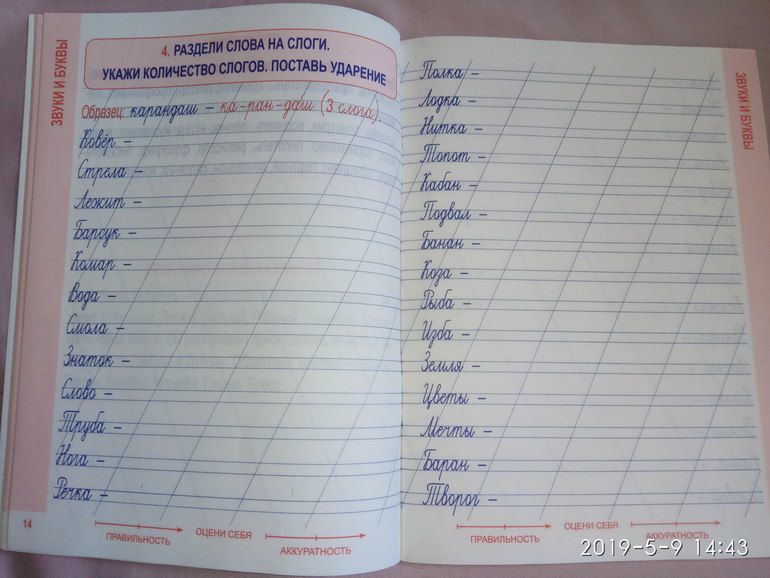 ЗВУКИ И БУКВЫ
4. РАЗДЕЛИ СЛОВА НА СЛОГИ.
УКАЖИ КОЛИЧЕСТВО СЛОГОВ. ПОСТАВЬ УДАРЕНИЕ
Образец: карандаш – ка-ран-даш (3 слога).
Ковёр –
Стрела –
Лежит –
Барсук –
Комар –
Вода –
Смола –
Знаток –
Слово –
Труба –
Нога –
Речка –
14
ПРАВИЛЬНОСТЬ
ОЦЕНИ СЕБЯ
АККУРАТНОСТЬ
ЗВУКИ И БУКВЫ
Полка –
Лодка –
Нитка –
Топот –
Кабан –
Подвал –
Банан –
Коза –
Рыба –
Изба –
Земля –
Цветы –
Мечты –
Баран –
Творог –
ПРАВИЛЬНОСТЬ
ОЦЕНИ СЕБЯ
АККУРАТНОСТЬ
2019-5-9 14:43